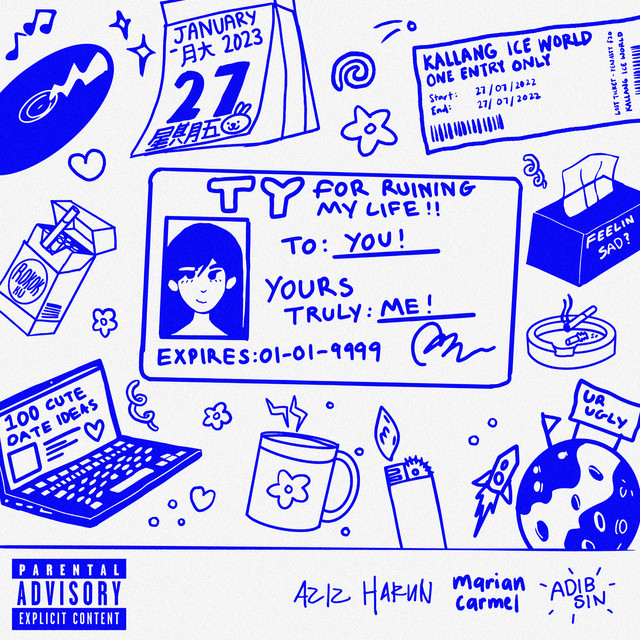 JANUARY
一月大 2023
27
星期五
KALLANG ICE WORLD
ONE ENTRY ONLY
Start: 27/07/2022
End: 27/07/2022
KALLANG ICE WORLD
TY FOR RUINING
MY LIFE!!
TO: YOU!
YOURS
TRULY: ME!
EXPIRES:01-01-9999
FEELIN
SAD?
100 CUTE
DATE IDEAS
UR
UGLY
PARENTAL
ADVISORY
EXPLICIT CONTENT
AZIZ HARUN
marian
carmel
ADIB
SIN